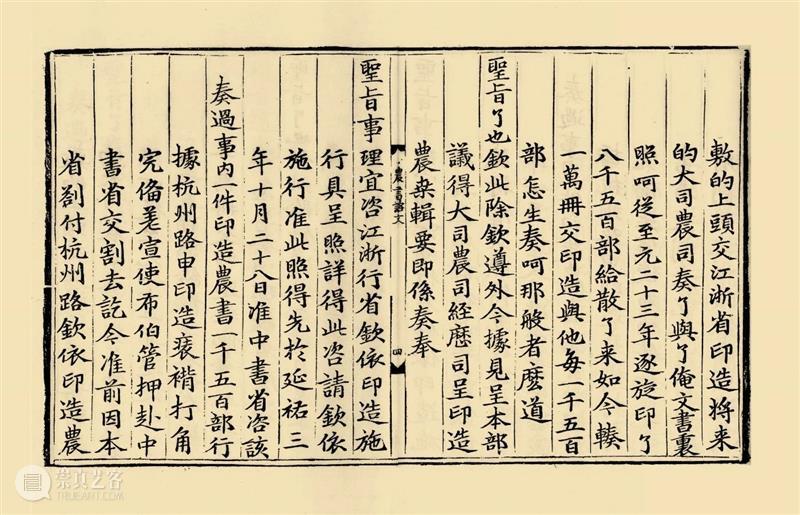 敷的上頭交江浙省印造將来
的大司農司奏了與了俺文書裏
照呵從至元二十三年逐旋印了
八千五百部給散了来如今輳
一萬冊交印造與他每一千五百
部怎生奏呵那般者麽道
聖旨了也欽此除欽遵外今據見呈本部
議得大司農司経歷司呈印造
農桒輯要即係奏奉
農書諮文
四
聖旨事理宜咨江浙行省欽依印造施
行具呈照詳得此咨請欽依
施行准此照得先於延祐三
年十月二十八日准中書省咨該
奏過事内一件印造農書一千五百部行
據杭州路申印造裵褙打角
完俻差宣使布伯管押赴中
書省交割去訖今准前因本
省劄付杭州路欽依印造農
崇真艺客
TRUEART.COM